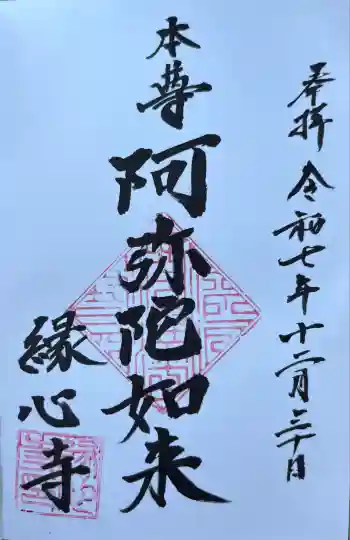 奉拝 令和七年十二月三十日
本尊
阿弥陀如来
縁心寺